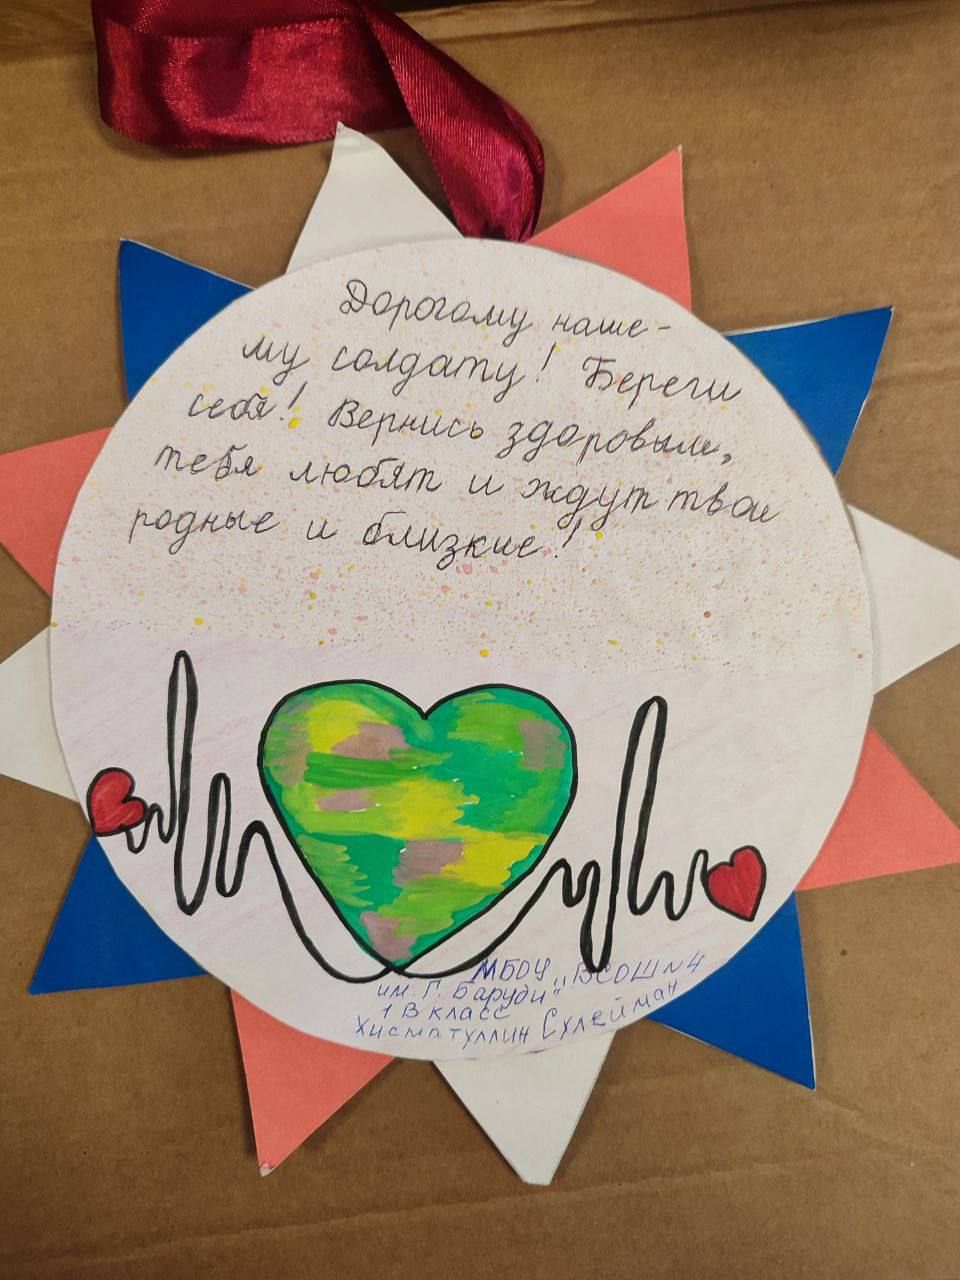 Дорогому наше-
му солдату! Береги
себя! Вернись здоровым,
тебя любят и ждут твои
родные и близкие!
МБОУ „ВСОШ №4
им. Г. Баруди"
1 В класс
Хисматуллин Сулейман